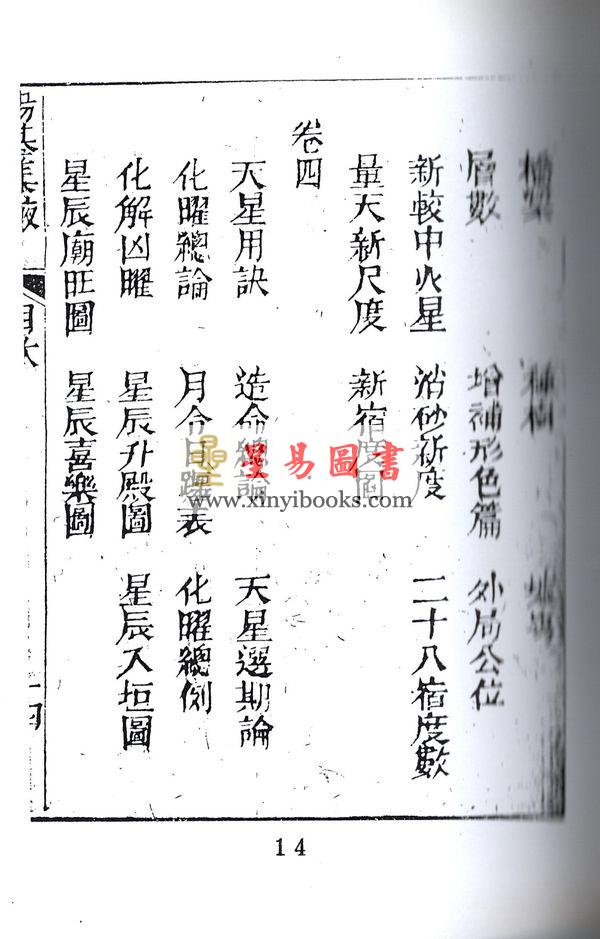 層數 增補形色篇 外局公位
新較中火星 消砂新度 二十八宿度數
量天新尺度 新宿度圖
卷四
天星用訣 造命總論 天星選期論
化曜總論 月令日躔表 化曜總例
化解凶曜 星辰升殿圖 星辰入垣圖
星辰廟旺圖 星辰喜樂圖
星易圖書
www.xinyibooks.com
14